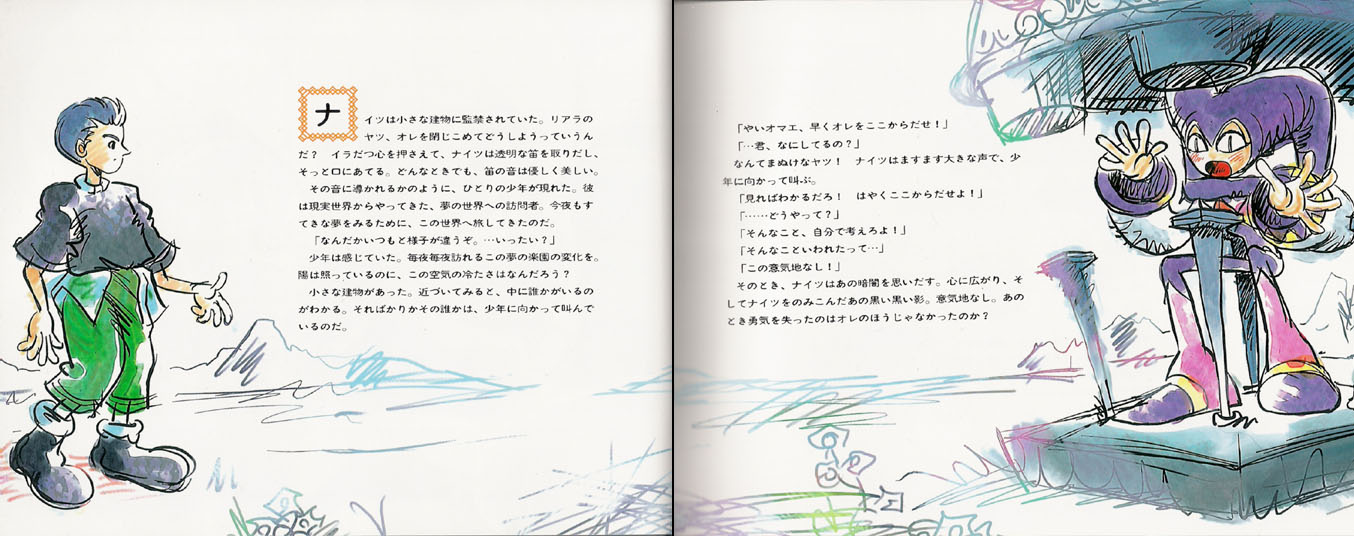 ナイツは小さな建物に監禁されていた。リアラの
ヤツ、オレを閉じこめてどうしようっていうん
だ？　イラだつ心を押さえて、ナイツは透明な笛を取りだし、
そっと口にあてる。どんなときでも、笛の音は優しく美しい。
　その音に導かれるかのように、ひとりの少年が現れた。彼
は現実世界からやってきた、夢の世界への訪問者。今夜もす
てきな夢をみるために、この世界へ旅してきたのだ。
　「なんだかいつもと様子が違うぞ。…いったい？」
　少年は感じていた。毎夜毎夜訪れるこの夢の楽園の変化を。
陽は照っているのに、この空気の冷たさはなんだろう？
　小さな建物があった。近づいてみると、中に誰かがいるの
がわかる。そればかりかその誰かは、少年に向かって叫んで
いるのだ。
　「やいオマエ、早くオレをここからだせ！」
　「…君、なにしてるの？」
　なんてまぬけなヤツ！　ナイツはますます大きな声で、少
年に向かって叫ぶ。
　「見ればわかるだろ！　はやくここからだせよ！」
　「……どうやって？」
　「そんなこと、自分で考えろよ！」
　「そんなこといわれたって…」
　「この意気地なし！」
　そのとき、ナイツはあの暗闇を思いだす。心に広がり、そ
してナイツをのみこんだあの黒い黒い影。意気地なし。あの
とき勇気を失ったのはオレのほうじゃなかったのか？